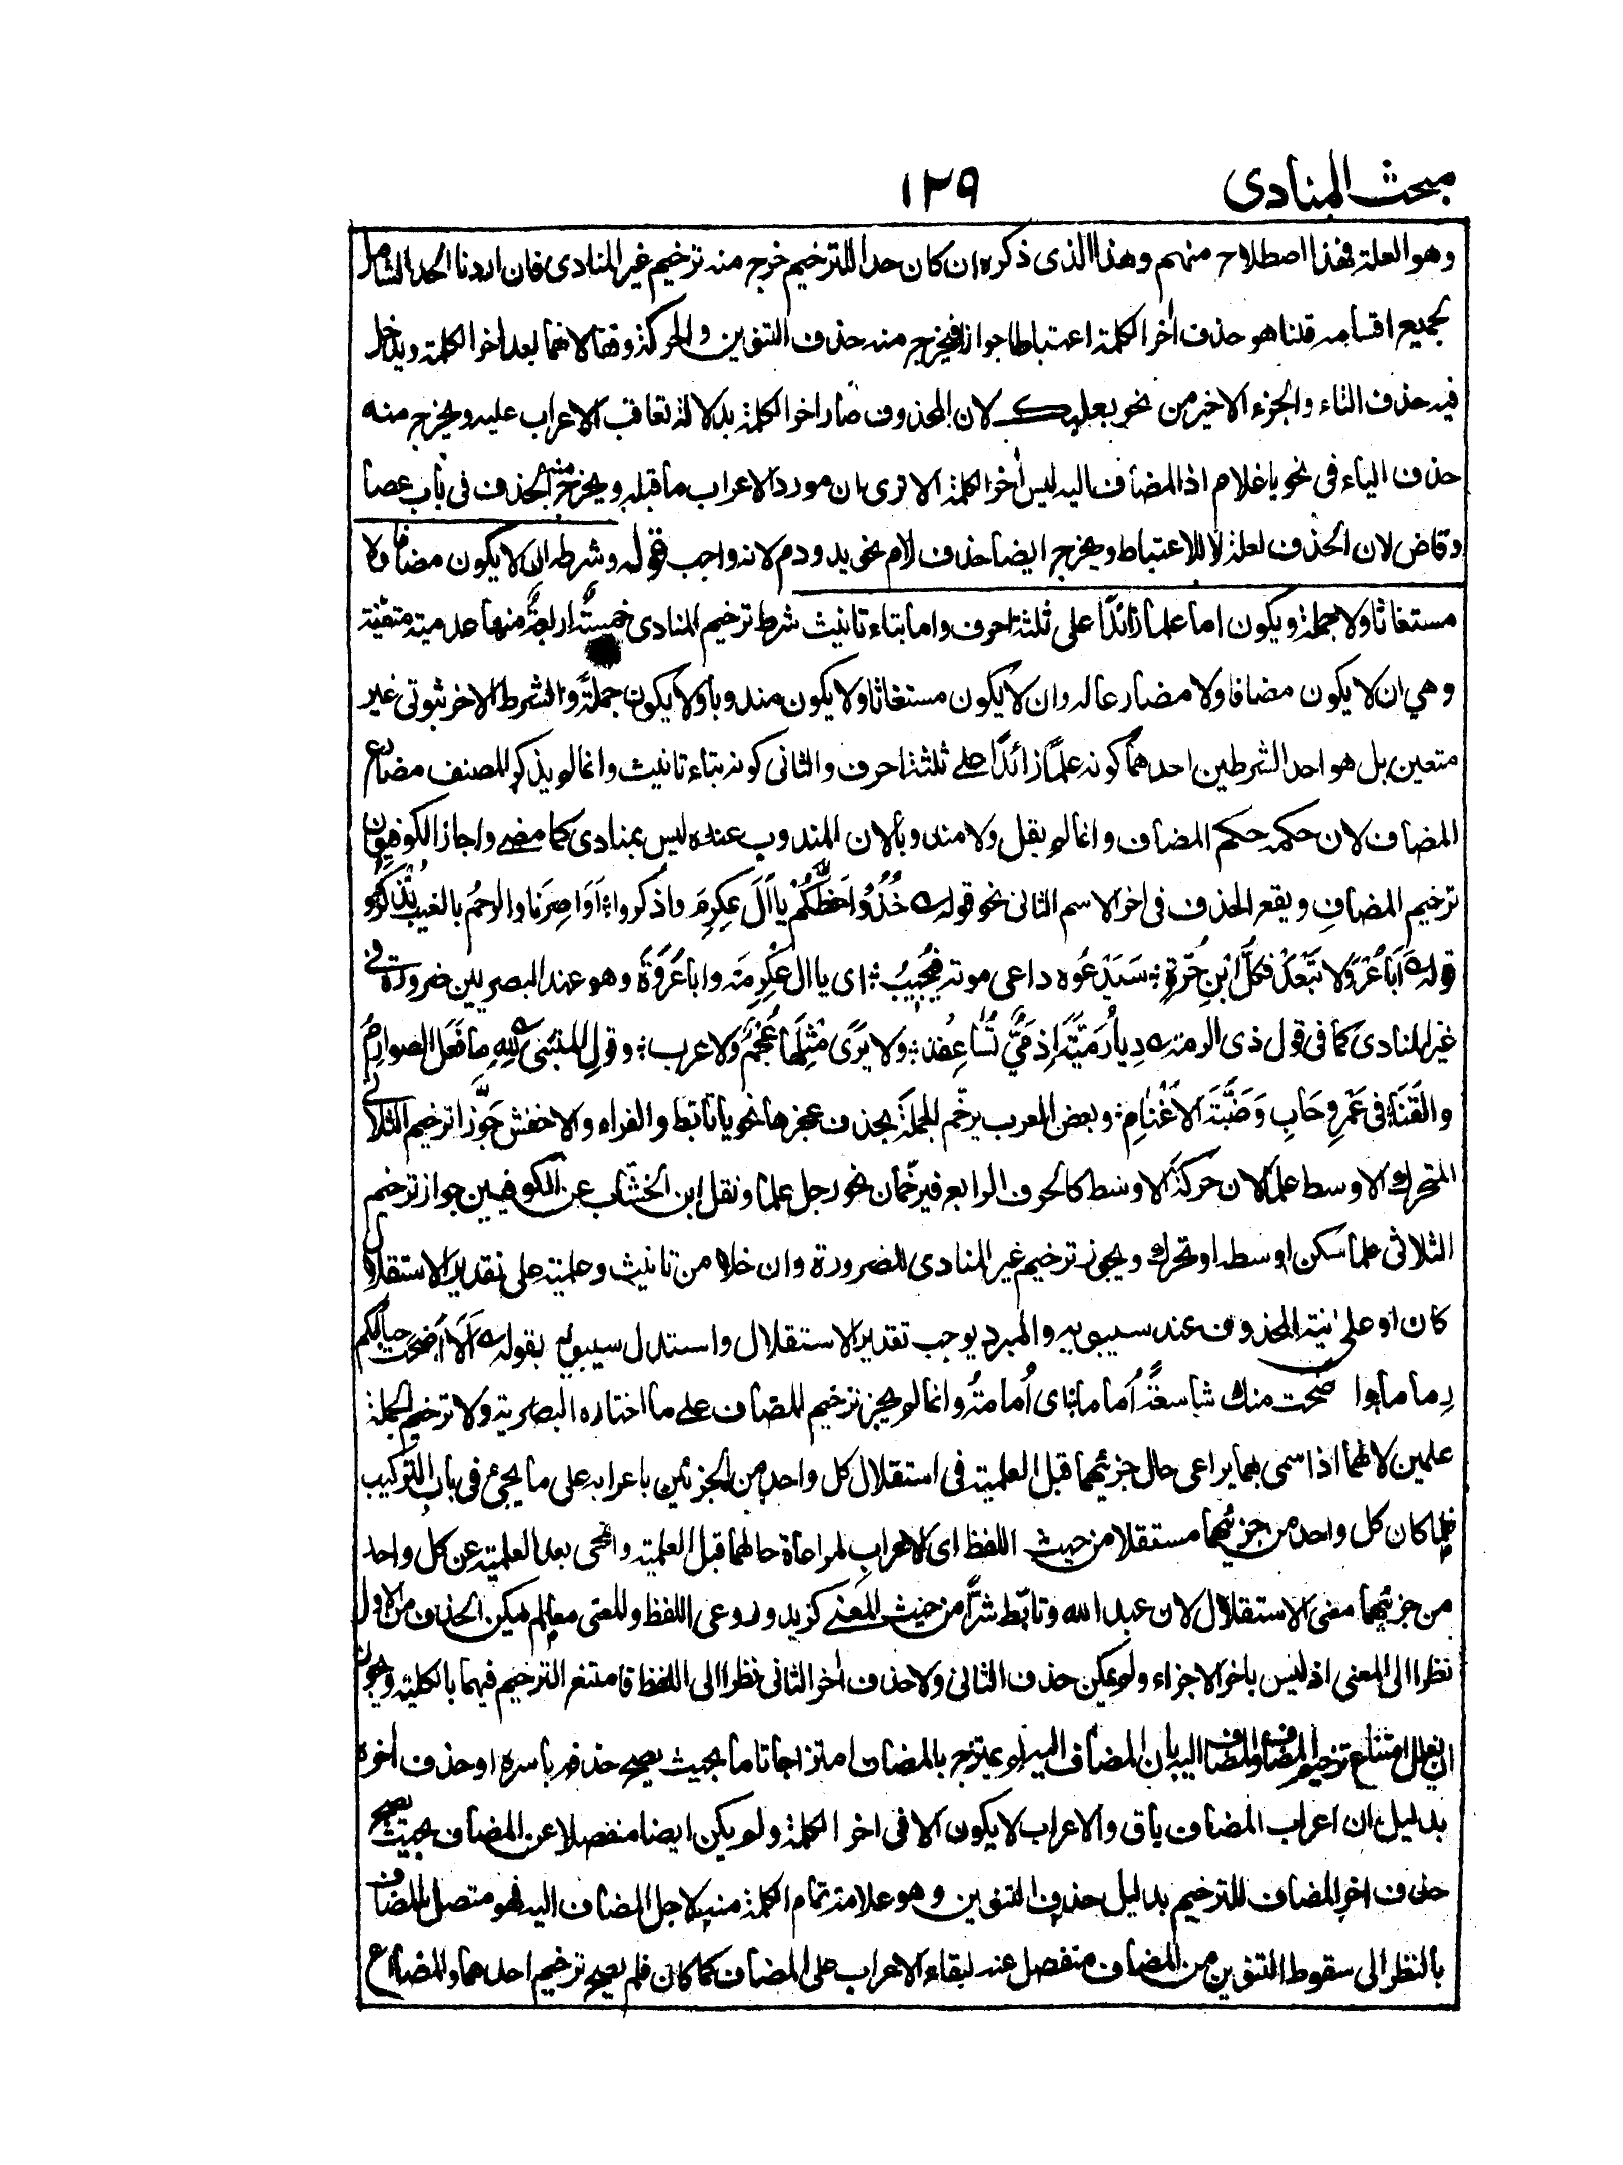 مبحث المنادى
١٢٩
وهو العلة فهذا اصطلاح منهم وهذا الذى ذكره ان كان حدا للترخيم خرج منه ترخيم غير المنادى فان اردنا الحد الشامل
لجميع اقسامه قلنا هو حذف اٰخر الكلمة اعتباطا جوازا فيخرج منه حذف التنوين والحركة وقفا لانهما بعد اخر الكلمة ويدخل
فيه حذف التاء والجزء الاخير من نحو بعلبك لان المحذوف صار اخر الكلمة بدلالة تعاقب الاعراب عليه ويخرج منه
حذف الياء فى نحو يا غلام اذ المضاف اليه ليس اٰخر الكلمة الا ترى ان مورد الاعراب ما قبله ويخرج منه الحذف فى باب عصا
وقاض لان الحذف لعلة لا للاعتباط ويخرج ايضا حذف لام نحو يد ودم لانه واجب قوله وشرطه ان لا يكون مضافا ولا
مستغاثا ولا جملة ويكون اما علما زائدًا على ثلثة احرف واما بتاء تانيث شرط ترخيم المنادى خمسةٌ اربعةٌ منها عدمية متعيّنة
وهي ان لا يكون مضافا ولا مضارعا له وان لا يكون مستغاثا ولا يكون مندوبا ولا يكون جملةً والشرط الاخر ثبوتى غير
متعين بل هو احد الشرطين احدهما كونه علمًا زائدًا على ثلثة احرف والثانى كونه بتاء تانيث وانما لم يذكر المصنف مضارع
المضاف لان حكمه حكم المضاف وانما لم يقل ولا مندوبا لان المندوب عنده ليس بمنادى كما مضى واجاز الكوفيون
ترخيم المضافِ ويقع الحذف فى اخر الاسم الثانى نحو قوله ؎ خُذُوا حَظَّكُمْ يا اٰلَ عِكرِمَ واذكروا ؛ اَوَاصِرَنا والرحمُ بالغيب تُذكَرُ و
قوله ؎ اَبَا عُرْوَ لا تَبْعَدْ فَكلُّ ابْنِ حُرَّةٍ ؛ سَيَدْعُوه داعى موته فيُجيبُ ؛ اى يا ال عِكْرِمَة وابا عُرْوَةَ وهو عند البصريين ضرورة فى
غير المنادى كما فى قول ذى الرمة ؎ دِيارُ مَيَّةَ اِذ مَيٌّ تُسَاعِفُنا ؛ ولا يَرَى مِثْلَها عُجْمٌ ولا عرب ؛ وقول المتنبى ؎ للهِ ما فَعَل الصوارِمُ
والقَنَا ؛ فى عَمْرِو حَابِ وَضَبَّةَ الاَغْنامِ ؛ وبعض العرب يرخّم الجملةَ بحذف عجزها نحو يا تابط والفراء والاخفش جوَّزا ترخيم الثلاثى
المتحرك الاوسط علما لان حركة الاوسط كالحرف الرابع فيرخّمان نحو رجل علما ونقل ابن الخشّاب عن الكوفيين جواز ترخيم
الثلاثى علما سكن اوسطه او تحرك ويجوز ترخيم غير المنادى للضرورة وان خلا من تانيث وعلمية على تقدير الاستقلال
كان او على نية المحذوف عند سيبويه والمبرد يوجب تقدير الاستقلال واستدل سيبويه بقوله ؎ اَلَا اَضْحَت حبالكم
رِماما ؛ وا ضحت منك شاسعةً اُماما ؛ اى اُمامة وانما لم يجز ترخيم المضاف على ما اختاره البصرية ولا ترخيم الجملة
علمين لانهما اذا سمى بهما يراعى حال جزئيهما قبل العلمية فى استقلال كل واحد من الجزئين باعرابه على ما يجئ فى باب التركيب
فلما كان كل واحد من جزئيهما مستقلا من حيث اللفظ اى الاعراب لمراعاة حالهما قبل العلمية وانمحى بعد العلمية عن كل واحد
من جزئيهما معنى الاستقلال لان عبد الله وتابّط شرًّا من حيث المعنى كزيد وروعى اللفظ والمعنى معا لم يمكن الحذف من الاول
نظرا الى المعنى اذ ليس باٰخر الاجزاء ولم يمكن حذف الثانى ولا حذف اٰخر الثانى نظرا الى اللفظ فامتنع الترخيم فيهما بالكلية ويجوز
ان يعلل امتناع ترخيم المضاف والمضاف اليه بان المضاف اليه لم يمتزج بالمضاف امتزاجا تاما بحيث يصح حذفه باسره او حذف اٰخره
بدليل ان اعراب المضاف باق والاعراب لا يكون الا فى اخر الكلمة ولم يكن ايضا منفصلا عن المضاف بحيث يصح
حذف اخر المضاف للترخيم بدليل حذف التنوين وهو علامة تمام الكلمة منه لاجل المضاف اليه فهو متصل بالمضاف
بالنظر الى سقوط التنوين من المضاف منفصل عنه لبقاء الاعراب على المضاف كما كان فلم يصح ترخيم احدهما والمضارع